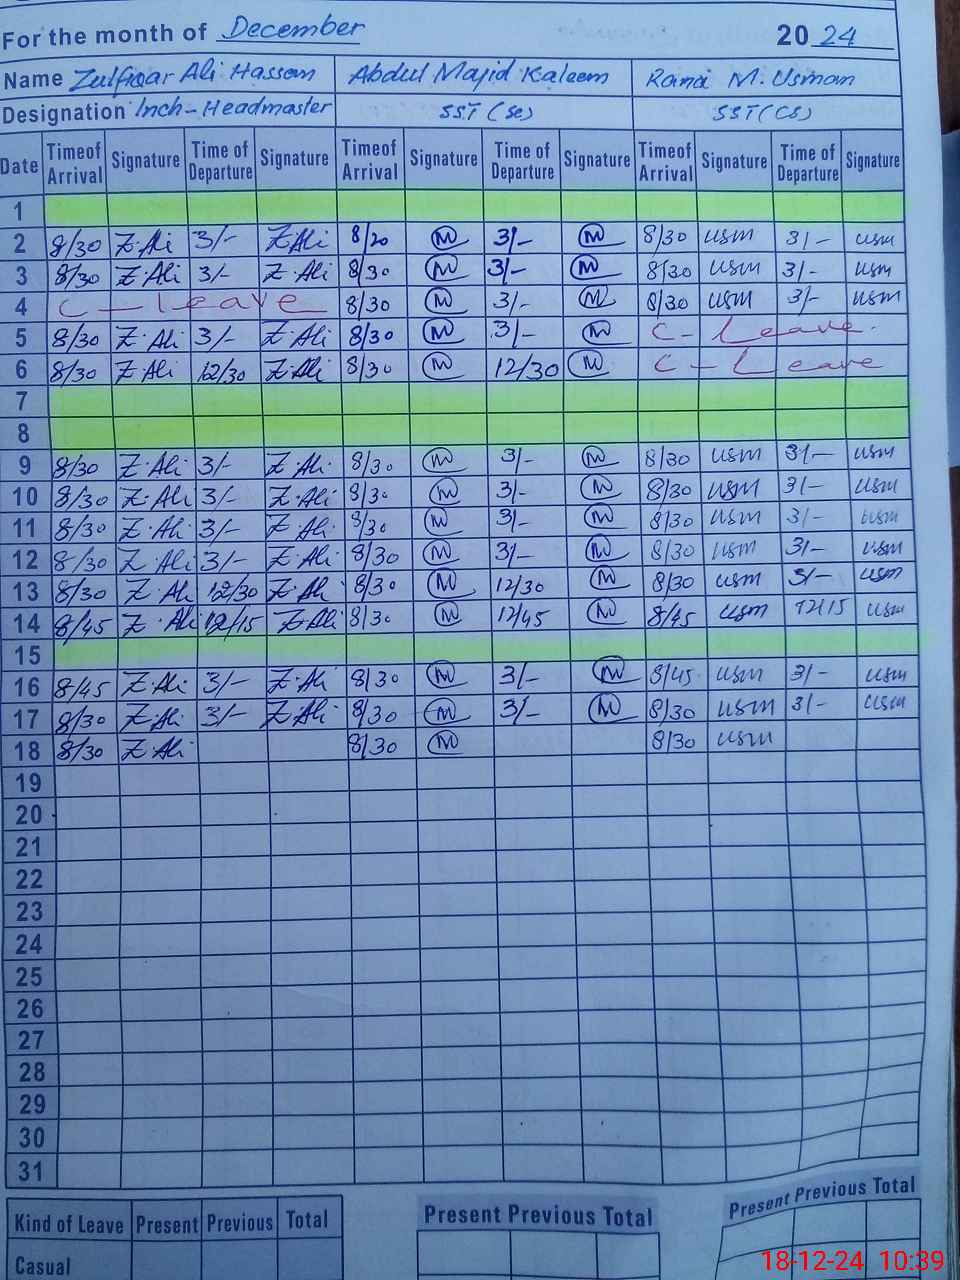 For the month of December 20 24
Name Zulfiqar Ali Hassan Abdul Majid Kaleem Rana M. Usman
Designation Inch-Headmaster SST (Sc) SST (CS)
Date Timeof Arrival Signature Time of Departure Signature Timeof Arrival Signature Time of Departure Signature Timeof Arrival Signature Time of Departure Signature
1
2 8/30 Z.Ali 3/- Z.Ali 8/20 M 3/- M 8/30 usm 3/- usm
3 8/30 Z.Ali 3/- Z.Ali 8/30 M 3/- M 8/30 usm 3/- usm
4 C - Leave 8/30 M 3/- M 8/30 usm 3/- usm
5 8/30 Z.Ali 3/- Z.Ali 8/30 M 3/- M C - Leave.
6 8/30 Z.Ali 12/30 Z.Ali 8/30 M 12/30 M C - Leave
7
8
9 8/30 Z.Ali 3/- Z.Ali 8/30 M 3/- M 8/30 usm 3/- usm
10 8/30 Z.Ali 3/- Z.Ali 8/30 M 3/- M 8/30 usm 3/- usm
11 8/30 Z.Ali 3/- Z.Ali 8/30 M 3/- M 8/30 usm 3/- usm
12 8/30 Z.Ali 3/- Z.Ali 8/30 M 3/- M 8/30 usm 3/- usm
13 8/30 Z.Ali 12/30 Z.Ali 8/30 M 12/30 M 8/30 usm 3/- usm
14 8/45 Z.Ali 12/15 Z.Ali 8/30 M 12/45 M 8/45 usm 12/15 usm
15
16 8/45 Z.Ali 3/- Z.Ali 8/30 M 3/- M 8/45 usm 3/- usm
17 8/30 Z.Ali 3/- Z.Ali 8/30 M 3/- M 8/30 usm 3/- usm
18 8/30 Z.Ali 8/30 M 8/30 usm
19
20
21
22
23
24
25
26
27
28
29
30
31
Kind of Leave Present Previous Total Present Previous Total Present Previous Total
Casual
18-12-24 10:39